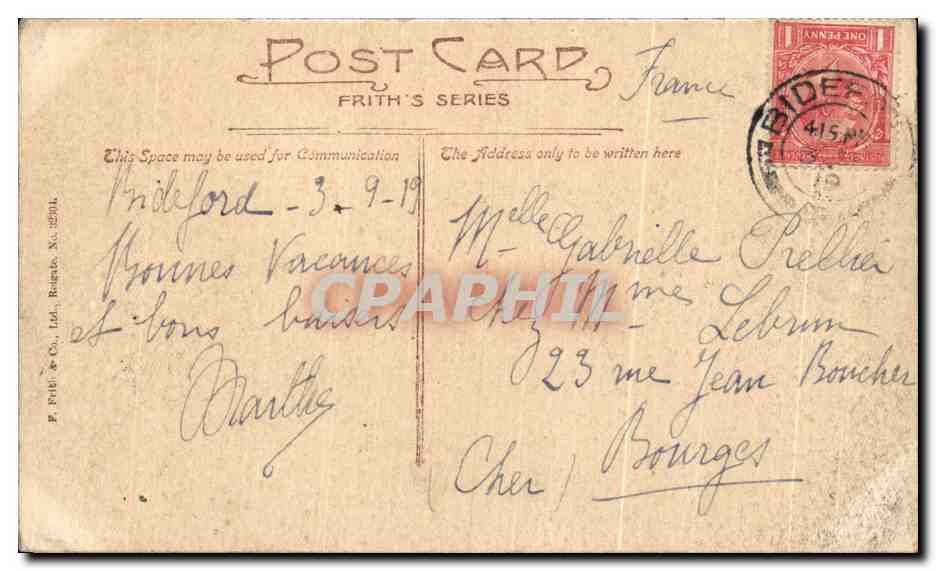 POST CARD
FRITH'S SERIES
France
ONE PENNY
BIDEF
415 PM
This Space may be used for Communication
The Address only to be written here
Bideford - 3. 9-19
Bonnes Vacances
et bons baisers
Marthe
Melle Gabrielle Prellier
chez Mme Lebrun
23 rue Jean Boucher
Bourges
(Cher)
F. Frith & Co., Ltd., Reigate. No. 32304.
CPAPHIL